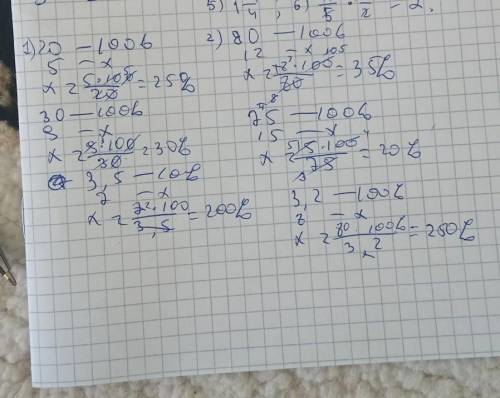 5) 1 1/4, 6) 1/5 · 1/2 = 2.
1) 20 — 100%
5 — x
x = 5·100/20 = 25%
30 — 100%
9 — x
x = 9·100/30 = 30%
3,5 — 10%
7 — x
x = 7·100/3,5 = 200%
2) 80 — 100%
12 — x
= 35%
75 — 100%
15 — x
x = 15·100/75 = 20%
3,2 — 100%
8 — x
x = 80·100%/3,2 = 250%